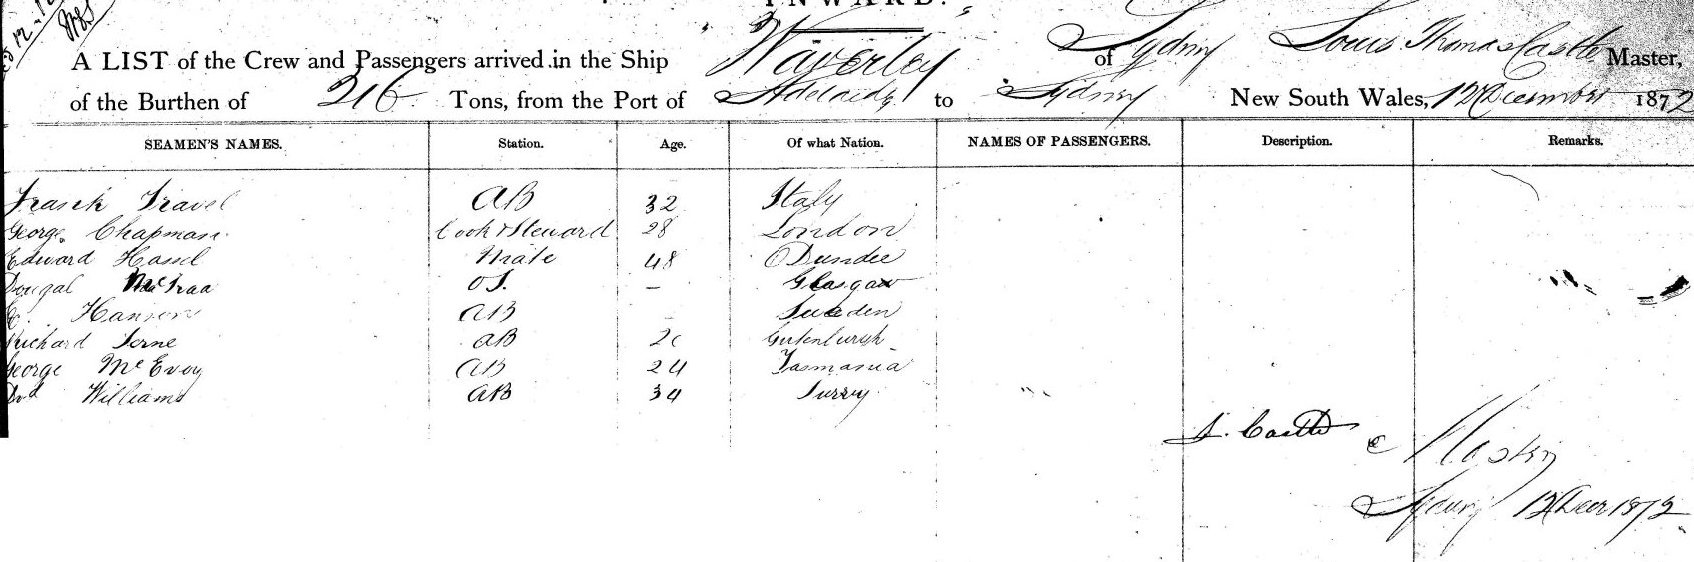 INWARD.
A LIST of the Crew and Passengers arrived in the Ship Waverley of Sydney Louis Thomas Castle Master,
of the Burthen of 216 Tons, from the Port of Adelaide to Sydney New South Wales, 12 December 1872
SEAMEN'S NAMES. Station. Age. Of what Nation. NAMES OF PASSENGERS. Description. Remarks.
Frank Travel AB 32 Italy
George Chapman Cook & Steward 28 London
Edward Hassel Mate 48 Dundee
Dougal McCraa O.S. — Glasgow
Hanson AB - Sweden
Richard AB
George McEvoy AB 24 Tasmania
Dvd Williams AB 34 Surry
L. Castle
Master
Sydney 12 Decr 1872